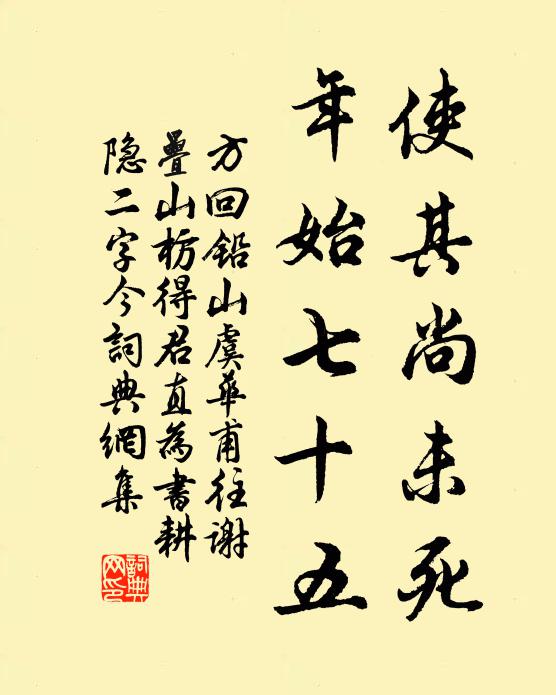 使其尚未死
年始七十五
方回鉛山虞華甫往谢
疊山枋得君直為書耕
隐二字今詞典網集
詞典網印